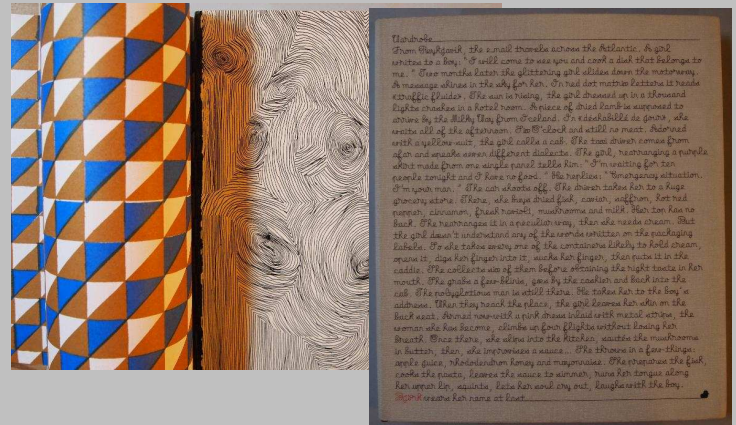 Wardrobe
From Reykjavik, the e.mail travels across the Atlantic. A girl
writes to a boy: "I will come to see you and cook a dish that belongs to
me." Two months later the glittering girl slides down the motorway.
A message shines in the sky for her. In red dot matrix letters it reads
traffic fluides. The sun is rising, the girl dressed up in a thousand
lights crashes in a hotel room. A piece of dried lamb is supposed to
arrive by the Milky Way from Iceland. In déshabillé de jours, she
waits all of the afternoon. O'clock and still no meat. Adorned
with a yellow suit, the girl calls a cab. The taxi driver comes from
afar and speaks seven different dialects. The girl, rearranging a purple
skirt made from one single pencil tells him: "I'm waiting for ten
people tonight and I have no food." He replies: "Emergency situation.
I'm your man." The car shoots off. The driver takes her to a huge
grocery store. There, she buys dried fish, caviar, saffron, hot red
pepper, cinnamon, fresh ravioli, mushrooms and milk. Her top has no
back. She rearranges it in a peculiar way, then she needs cream. But
the girl doesn't understand any of the words written on the packaging
labels. So she takes every one of the containers likely to hold cream,
opens it, digs her finger into it, sucks her finger, then puts it in the
caddie. She collects six of them before obtaining the right taste in her
mouth. She grabs a few blinis, goes by the cashier and back into the
cab. The polyglotious man is still there. He takes her to the boy's
address. When they reach the place, the girl leaves her skin on the
back seat. Armed now with a pink dress inlaid with metal strips, the
woman she has become, climbs up four flights without losing her
breath. Once there, she slips into the kitchen, sautés the mushrooms
in butter, then, she improvises a sauce... She throws in a few things:
apple juice, rhododendron honey and mayonnaise. She prepares the fish,
cooks the pasta, leaves the sauce to simmer, runs her tongue along
her upper lip, squints, lets her soul cry out, laughs with the boy.
Björk wears her name at last